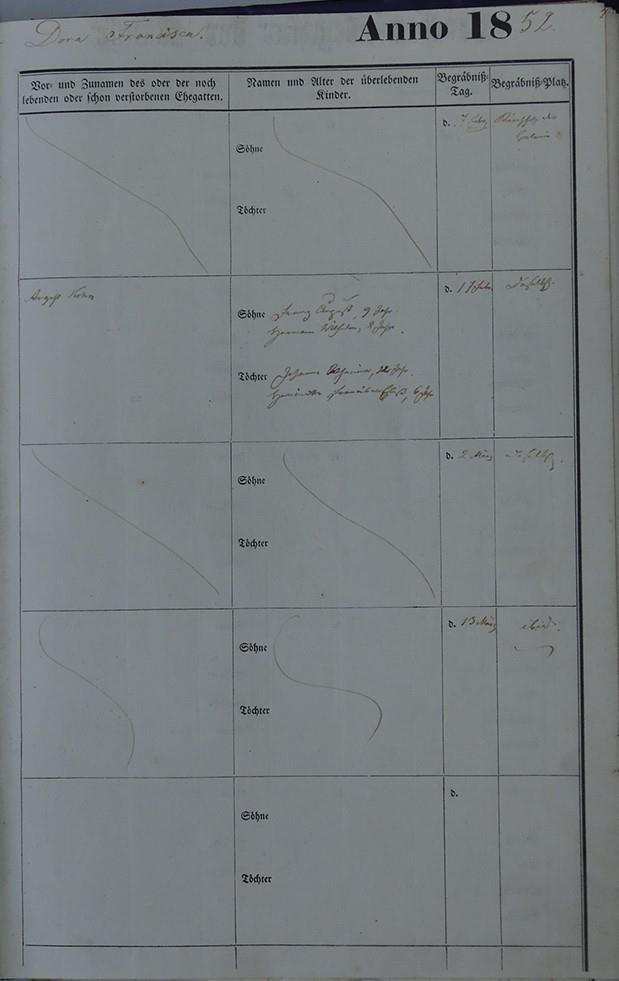 Dora Francisca.
Anno 1852.
Vor- und Zunamen des oder der noch
lebenden oder schon verstorbenen Ehegatten.
Namen und Alter der überlebenden
Kinder.
Begräbniß-
Tag.
Begräbniß-Platz.
Söhne
Töchter
d. 7
August
Söhne Franz August, 9 Jahr
Hermann Wilhelm, 8 Jahr.
Töchter Johanna Catharina, Jahr.
6 Jahr
d. 17
daselbst.
Söhne
Töchter
d. 2 März
daselbst.
Söhne
Töchter
d. 13 März
ibid.
Söhne
Töchter
d.